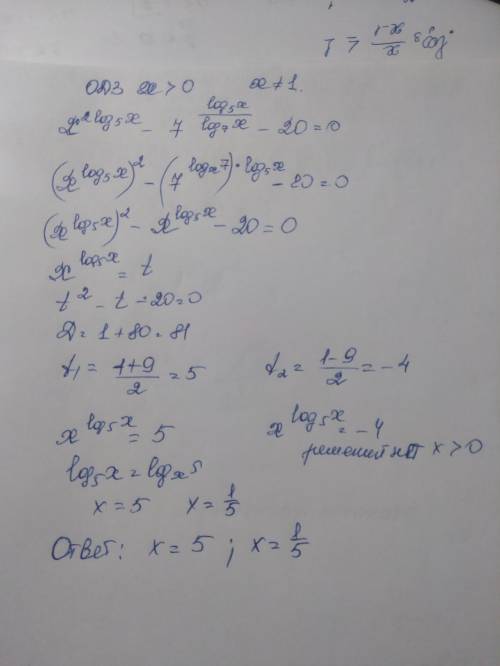 log₃ (1-x)/x ≤ 1
ОДЗ x > 0 x ≠ 1.
x^(2 log₅x) - 7^(log₅x / log₇x) - 20 = 0
(x^(log₅x))² - (7^(logₓ7))·log₅x - 20 = 0
(x^(log₅x))² - x^(log₅x) - 20 = 0
x^(log₅x) = t
t² - t - 20 = 0
D = 1 + 80 = 81
t₁ = (1+9)/2 = 5 t₂ = (1-9)/2 = -4
x^(log₅x) = 5 x^(log₅x) = -4
решений нет x > 0
log₅x = logₓ5
x = 5 x = 1/5
Ответ: x = 5 ; x = 1/5